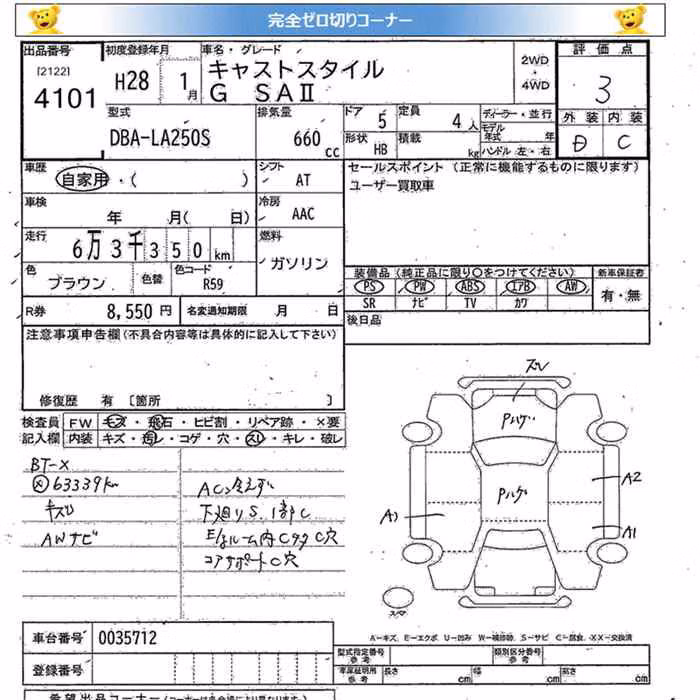 完全ゼロ切りコーナー
出品番号 初度登録年月 車名・グレード 評価点
[2122] 4101 H28 1月 キャストスタイル 2WD 3
G SAⅡ ・4WD
外装 内装
D C
型式 排気量 ドア 定員 ディーラー・並行
DBA-LA250S 660cc 5 4人 モデル年式 年
形状 HB 積載 kg ハンドル 左・右
車歴 自家用・( ) シフト AT セールスポイント (正常に機能するものに限ります)
ユーザー買取車
車検 年 月( 日) 冷房 AAC
走行 6万3千350km 燃料 ガソリン
色 ブラウン 色替 色コード R59
装備品 (純正品に限り○をつけてください) 新車保証書
PS PW ABS エアB AW 有・無
SR ナビ TV カワ
R券 8,550円 名変通知期限 月 日
後日品
注意事項申告欄 (不具合内容等は具体的に記入して下さい)
修復歴 有 〔箇所 〕
検査員記入欄 FW キズ・飛石・ヒビ割・リペア跡・×要
内装 キズ・汚レ・コゲ・穴・スレ・キレ・破レ
BT-X
63339km
キズ
AWナビ
AC冷えず
下廻りS.1部C
E/gルーム内CタクC穴
コアサポートC穴
ズレ
Pハゲ
Pハゲ
A2
A1
A1
スマ
A−キズ、E−エクボ、U−凹み W−補修跡、S−サビ C−腐食、XX−交換済
車台番号 0035712
型式指定番号 参考 類別区分番号 参考
登録番号
車庫証明用 参考 長さ cm 幅 cm 高さ cm
希望出品コーナー